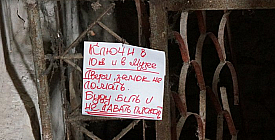 Ключ в
10 кв и в Музее
Двери, замок не
ломать.
Буду бить и
не давать